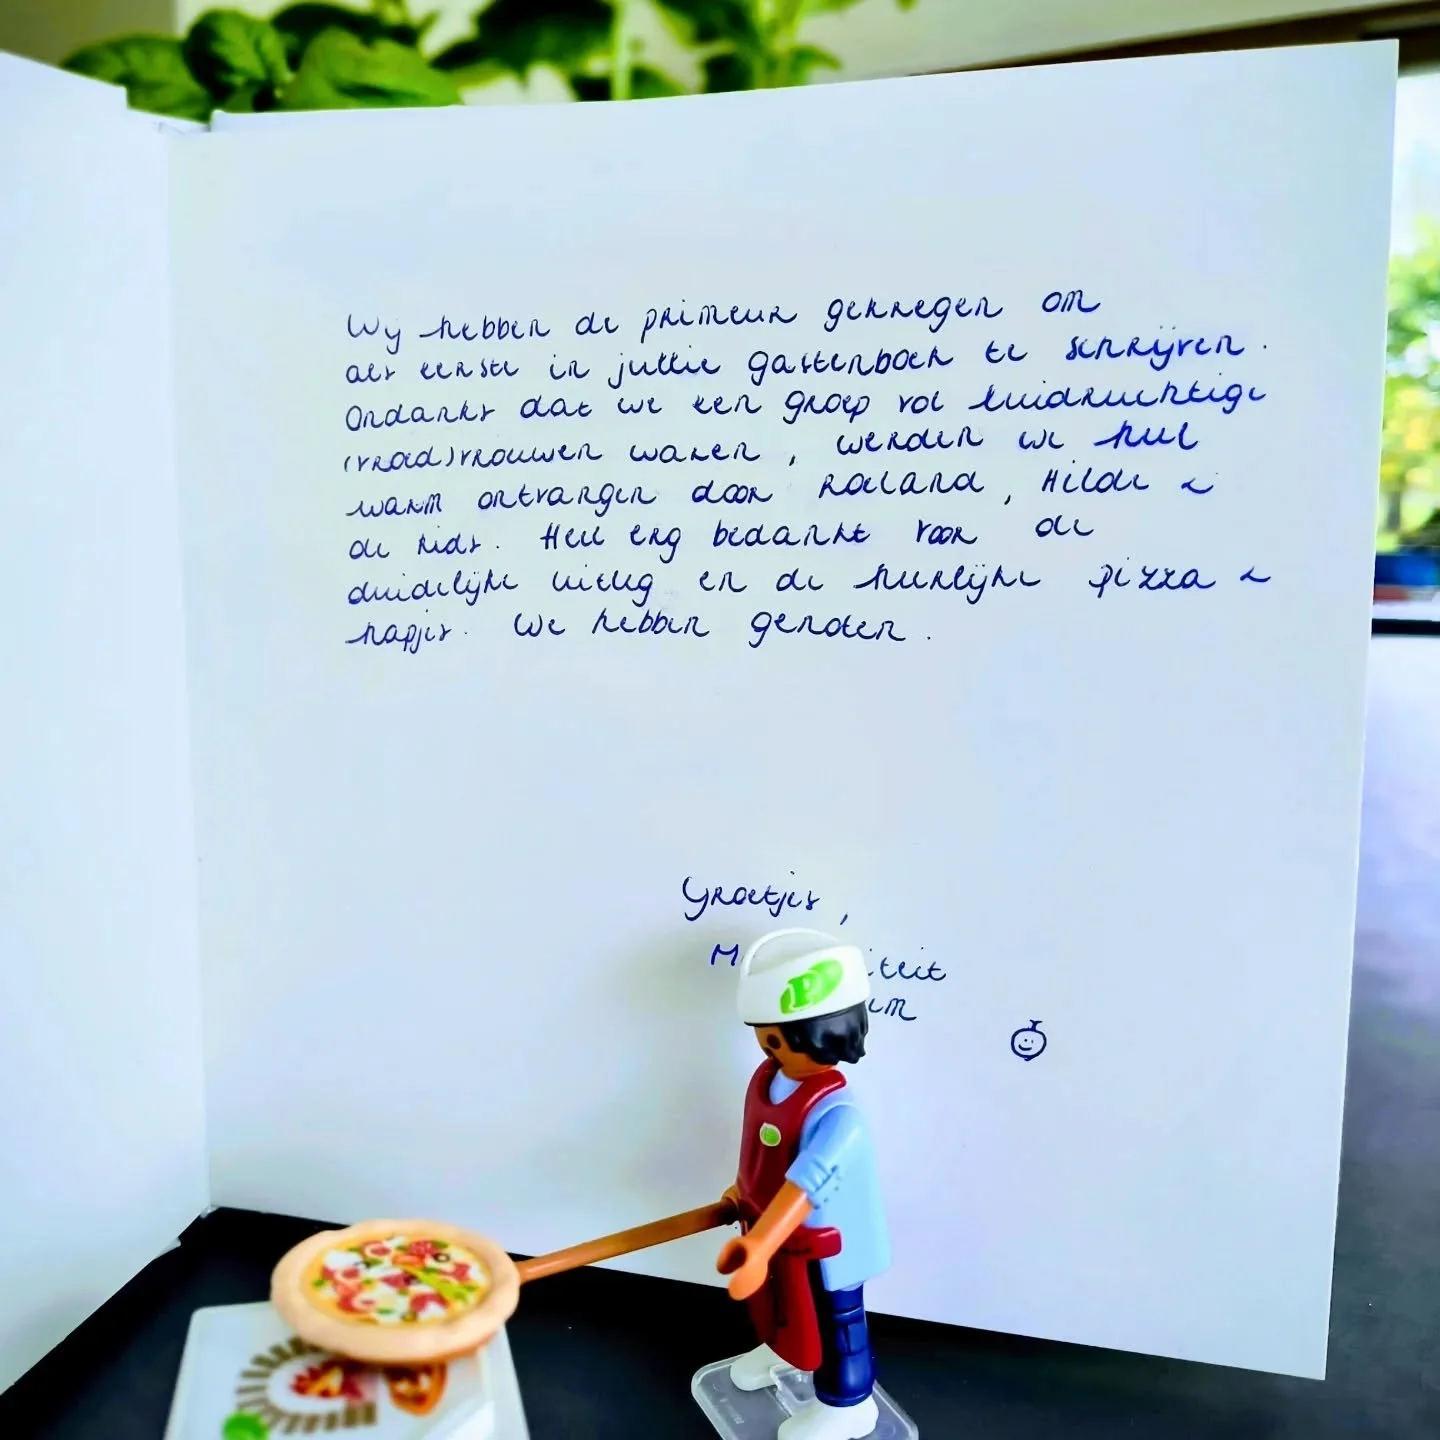 Wij hebben de primeur gekregen om
als eerste in jullie gastenboek te schrijven.
Ondanks dat we een groep vol luidruchtige
(vroed)vrouwen waren, werden we heel
warm ontvangen door Roeland, Hilde &
de kids. Heel erg bedankt voor de
duidelijke uitleg en de heerlijke pizza &
hapjes. We hebben genoten.
Groetjes,
P